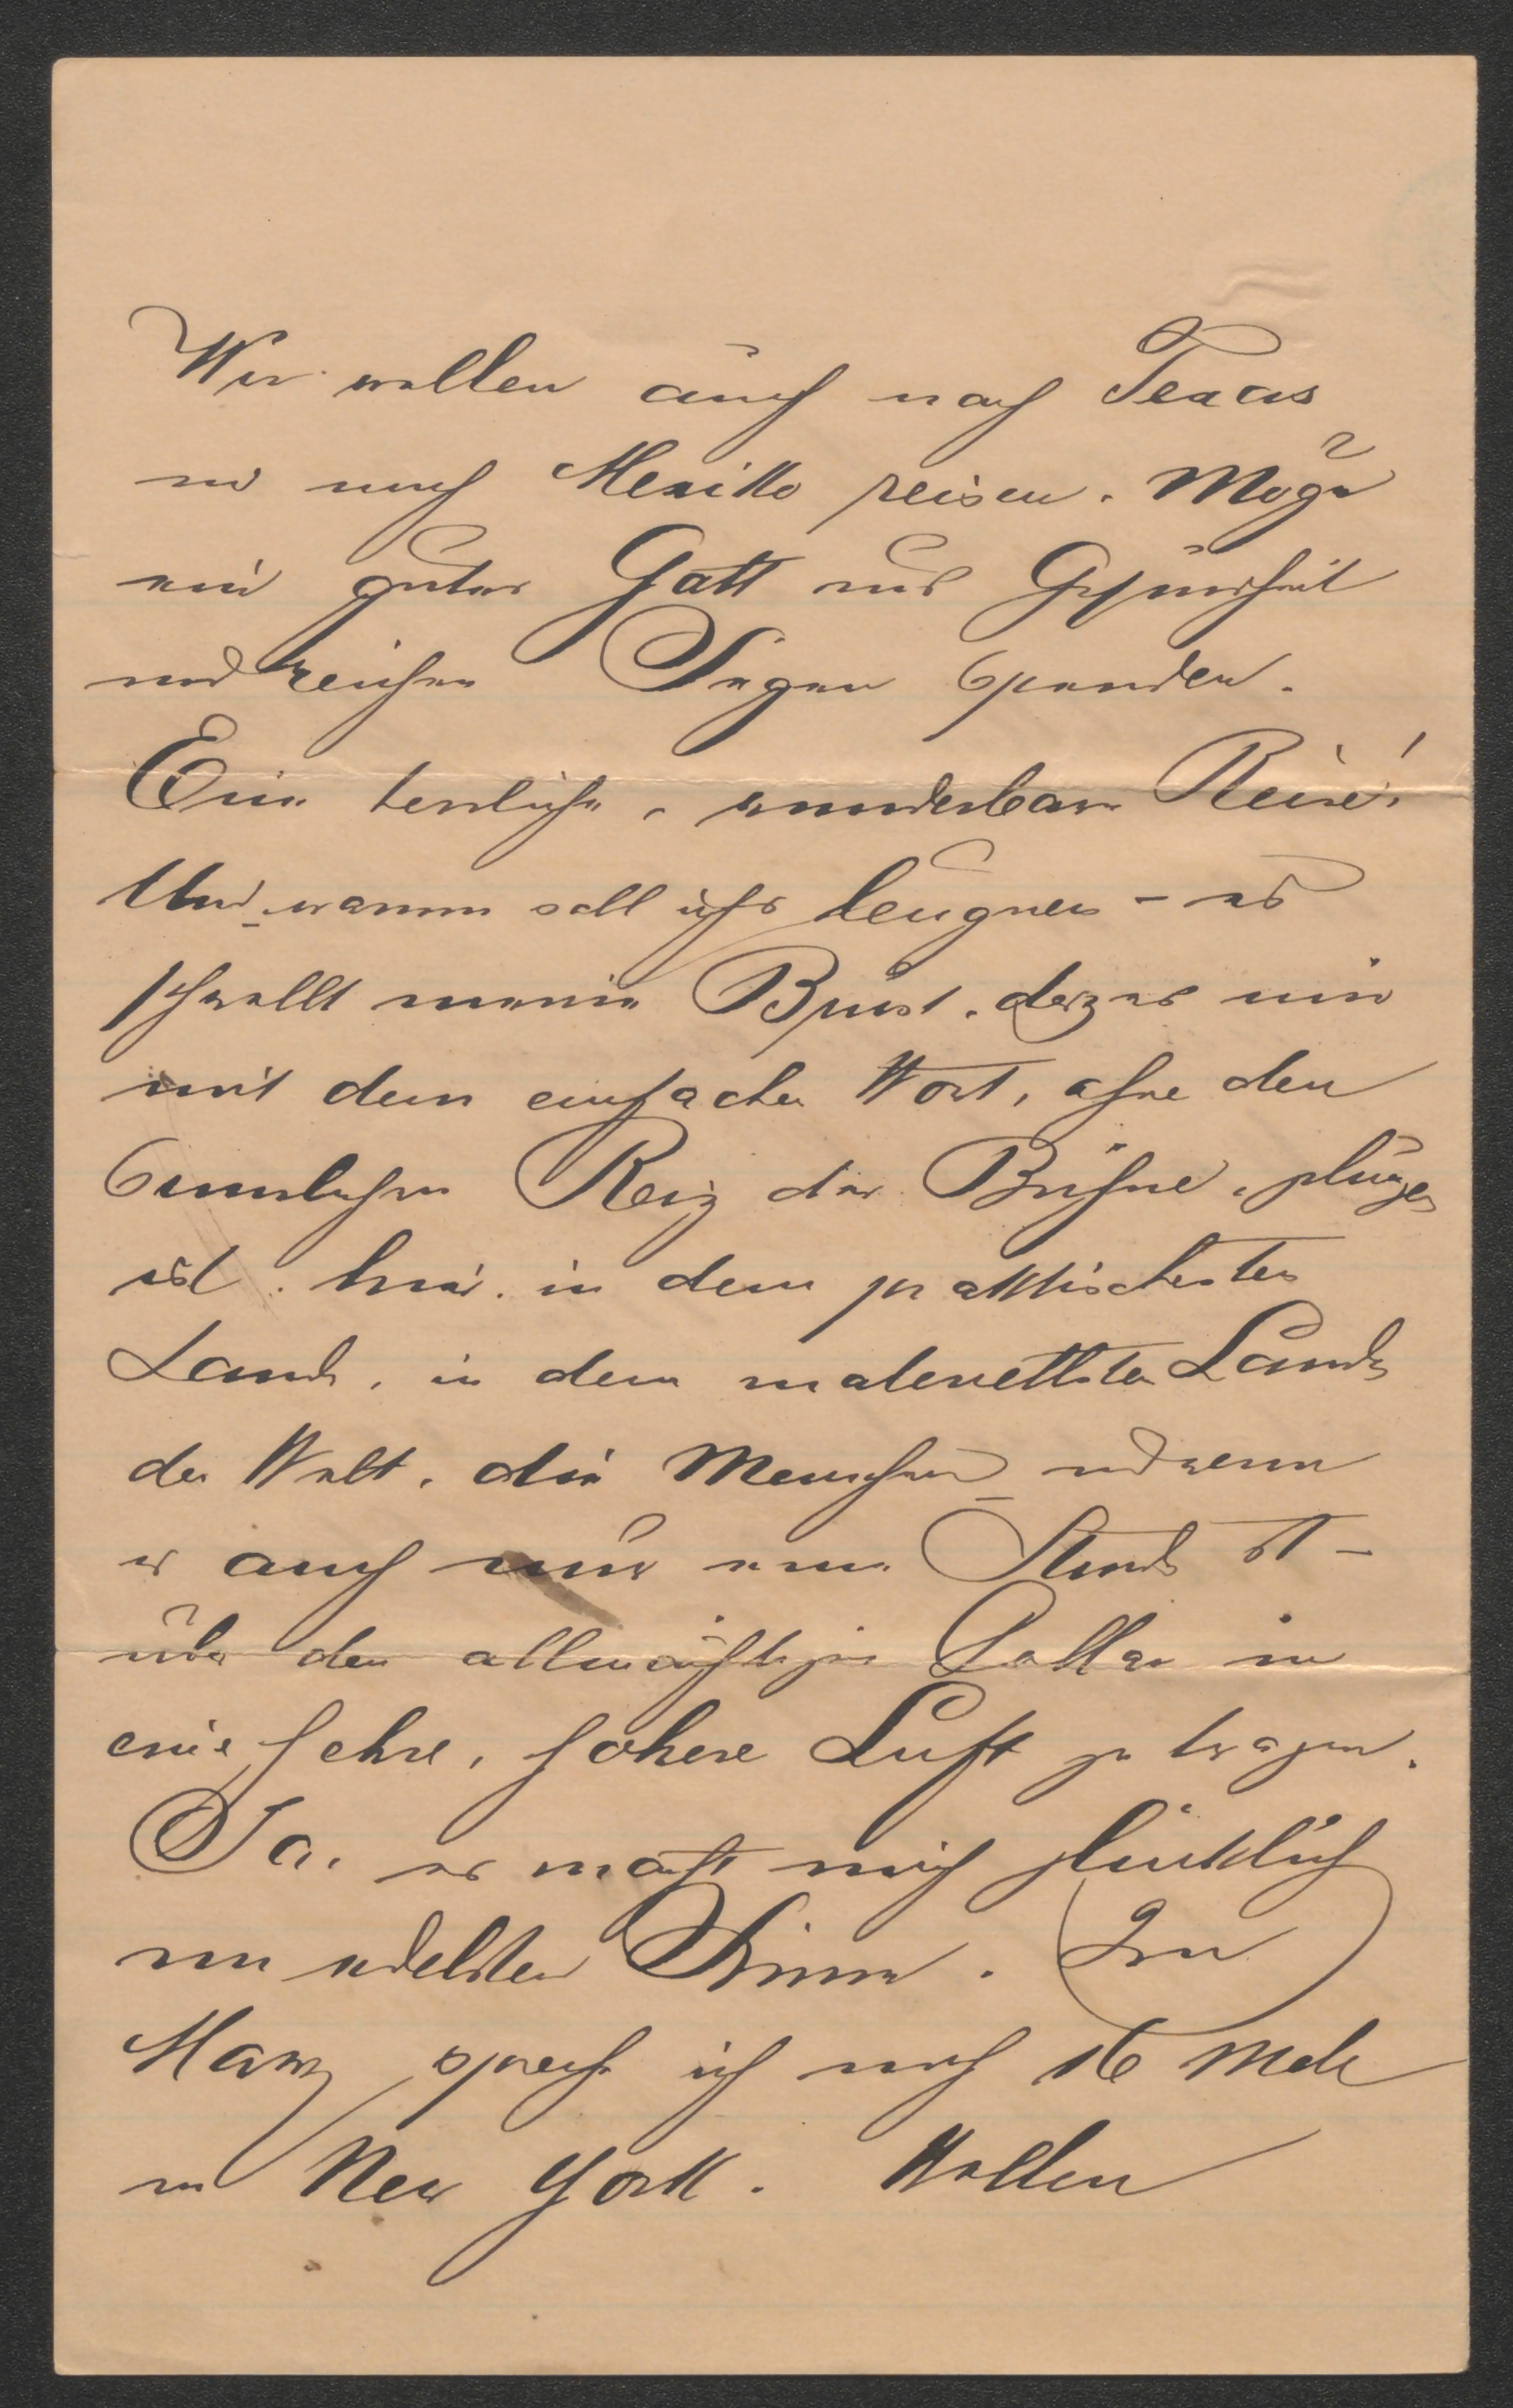 Wir wollen auch nach Texas
und nach Mexiko reisen. Möge
ein guter Gott uns Gesundheit
und reichen Segen spenden.
Eine herrliche, wunderbare Reise!
Und warum soll ichs leugnen – es
schwellt meine Brust, daß es mir
mit dem einfachen Wort, ohne den
sinnlichen Reiz der Bühne, gelungen
ist hier in dem praktischesten
Lande, in dem materiellsten Lande
der Welt, die Menschen und wenn
es auch nur eine Stunde ist –
über den allmächtigen Dollar in
eine hehre, höhere Luft zu tragen.
Ja, es macht mich glücklich
im edelsten Sinne. Im
März spreche ich noch 16 Mal
in New York. Wollen